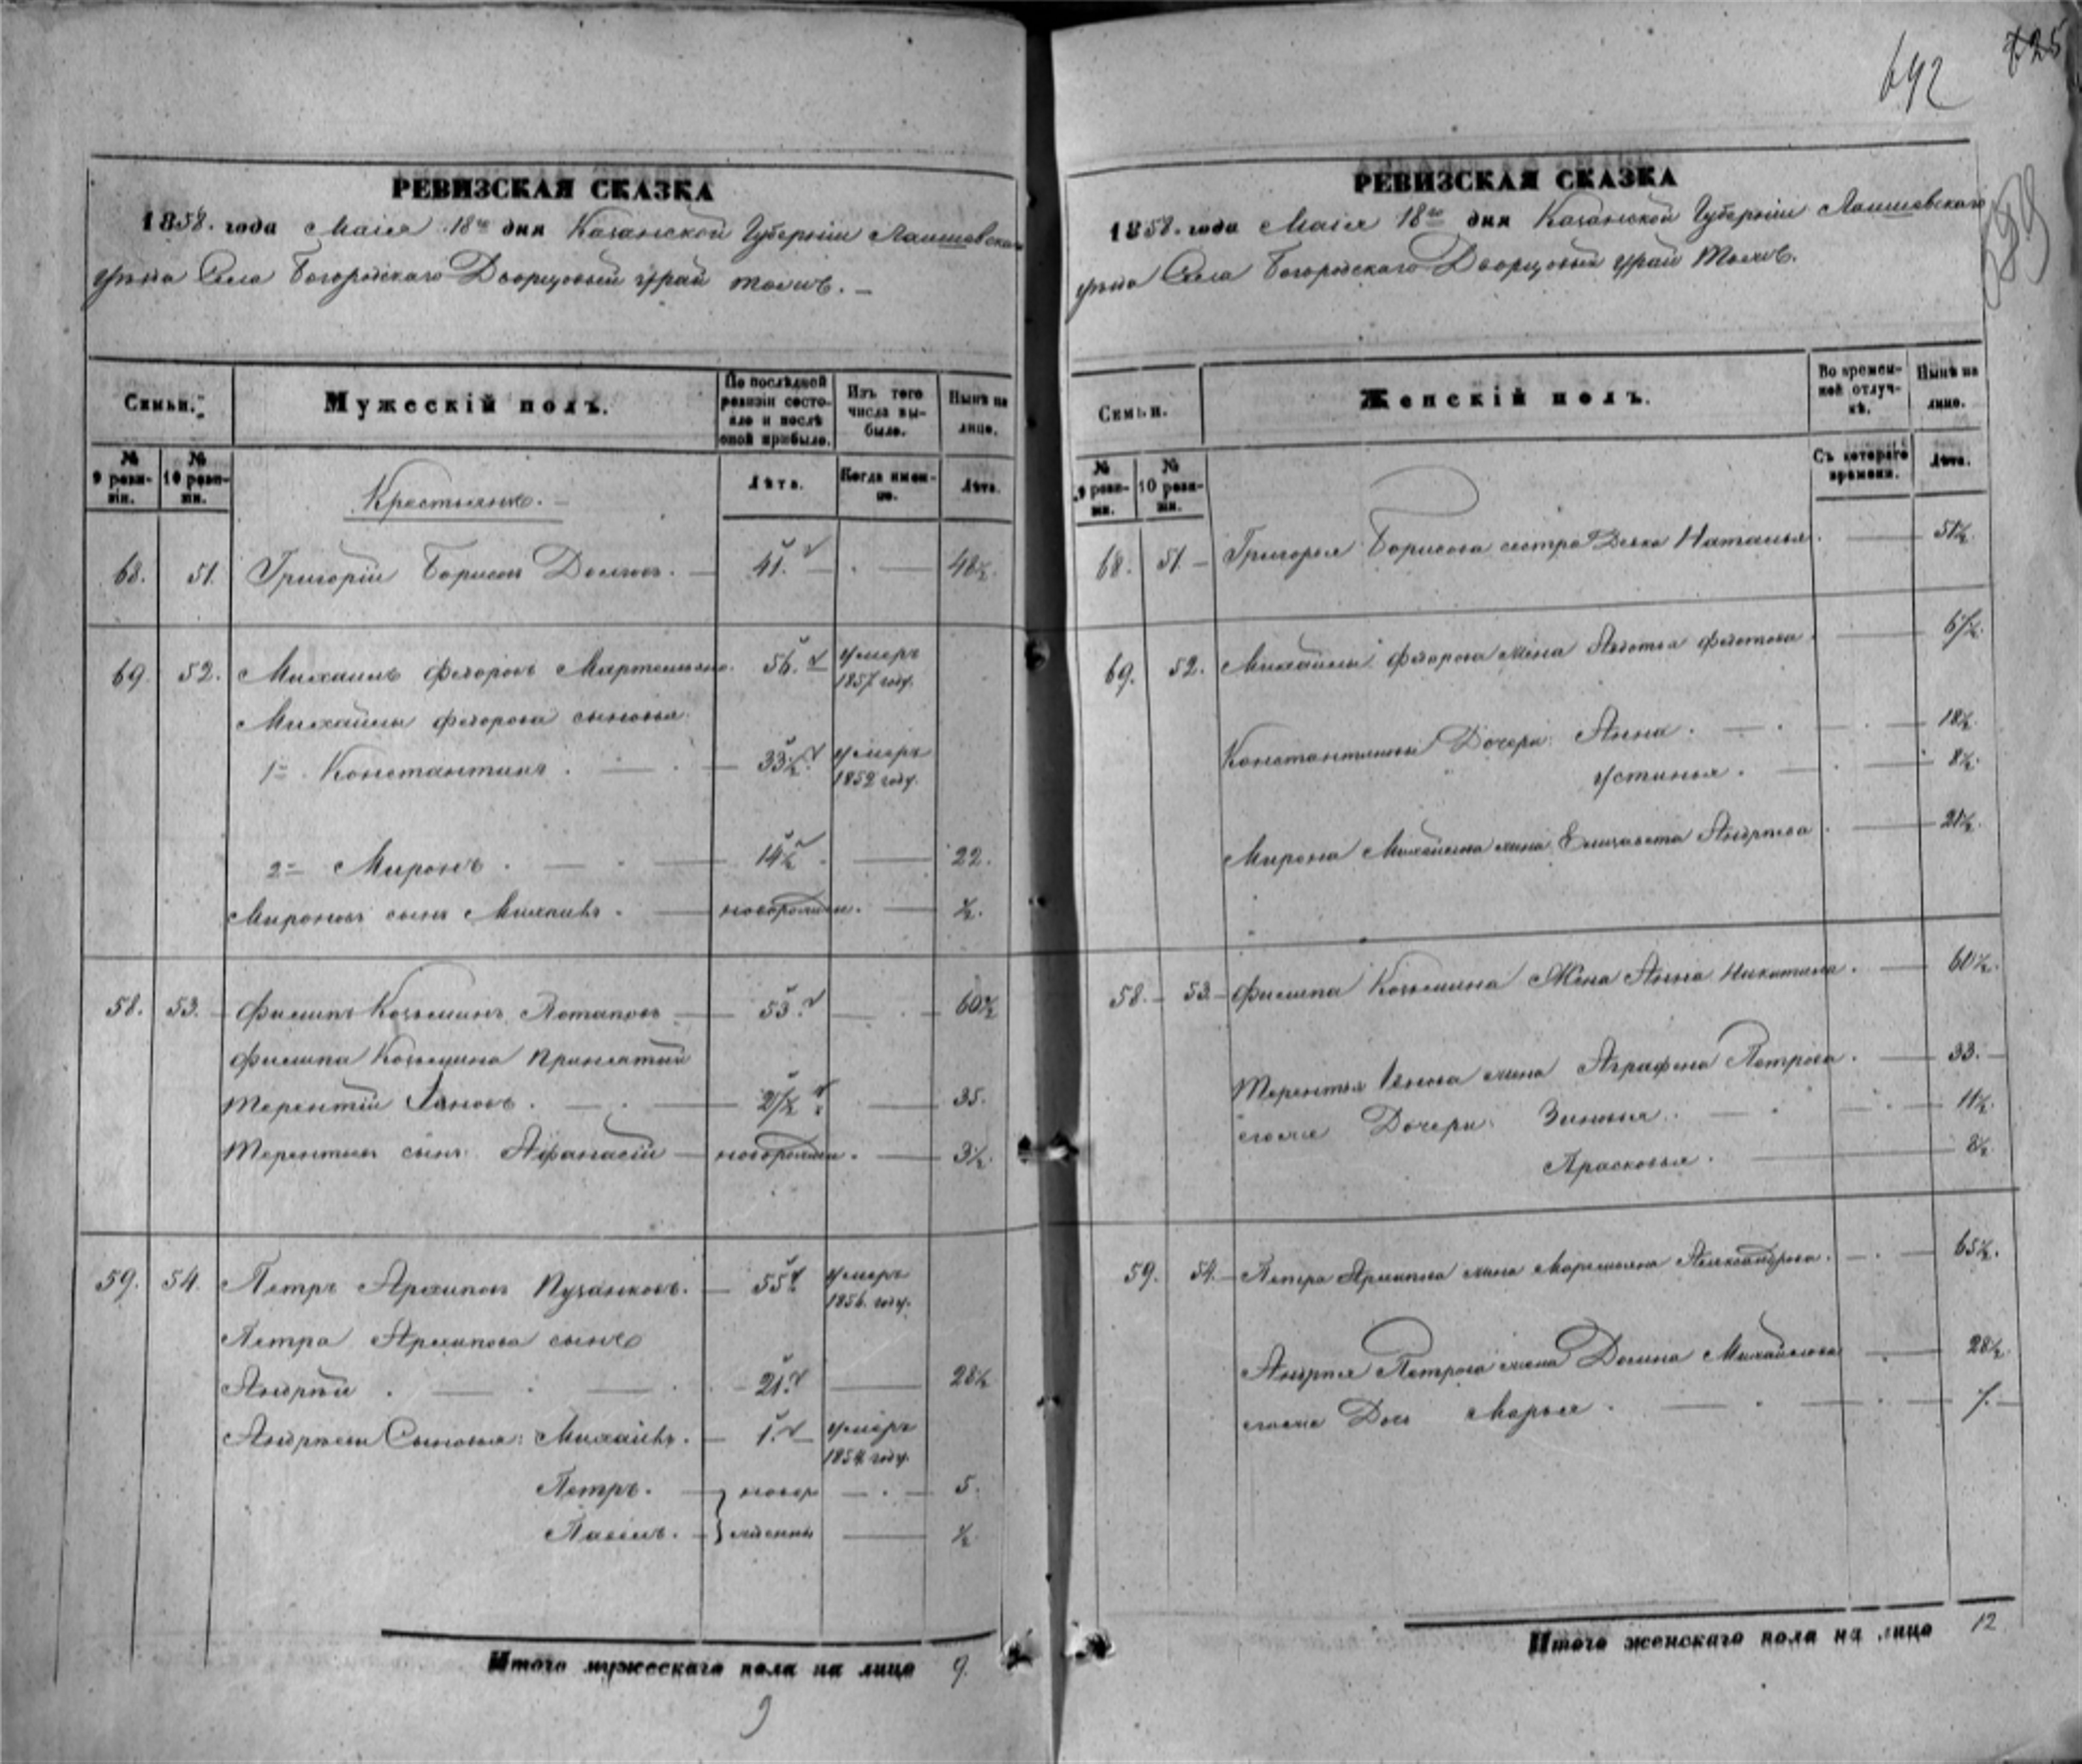 725
642
РЕВИЗСКАЯ СКАЗКА
1858. года Маія 18го дня Казанской Губерніи Лаишевскаго
уѣзда Села Богородскаго Дворцовый Урай тожъ. —
Семьи.
Мужескій полъ.
По послѣдней ревизіи состояло и послѣ оной прибыло.
Изъ того числа выбыло.
Нынѣ на лицо.
№ 9 ревизіи.
№ 10 ревизіи.
Крестьяне. —
Лѣта.
Когда именно.
Лѣта.
68. 51. Григорій Борисовъ — 41. — 48½.
69. 52. Михаилъ Федоровъ 56. умеръ 1857 году.
Михайлы Федорова сыновья:
1й Константинъ. — 33½. умеръ 1852 году.
2й Миронъ. — 14½. — 22.
Мироновъ сынъ Михаилъ. — новорожден. — ½.
58. 53. Филипъ Козьминъ Потаповъ — 53. — 60½
Филипа Козьмина Принятый
Терентій — 27½ — 35.
Терентьевъ сынъ Афанасій — новорожден. — 3½.
59. 54. Петръ Архиповъ Пузанковъ. — 55. умеръ 1856. году.
Петра Архипова сынъ
Андрей. — 21. — 28½
Андреевы Сыновья: Михаилъ. — 1. — умеръ 1854 году.
Петръ. — } новор — 5.
Павелъ. — } жденны — ½
Итого мужескаго пола на лицо 9.
9
РЕВИЗСКАЯ СКАЗКА
1858. года Маія 18го дня Казанской Губерніи Лаишевскаго
уѣзда Села Богородскаго Дворцовый Урай тожъ.
Семьи.
Женскій полъ.
Во временной отлучкѣ.
Нынѣ на лицо.
№ 9 ревизіи.
№ 10 ревизіи.
Съ котораго времени.
Лѣта.
68. 51. — Григорья Борисова сестра Девка Наталья. — 51½.
69. 52. Михайлы Федорова жена Авдотья Федотова. — 67½.
Константиновы Дочери: Анна. — 18½.
Устинья. — 8½.
Мирона Михайлова жена Елизавета Андреева. — 21½.
58. — 53. — Филипа Козьмина Жена Анна Никитина. — 60½.
Терентья жена Аграфена Петрова. — 33. —
Дочери: Зиновья. — 11½.
Прасковья. — 8½
59. 54. — Петра Архипова жена Маремьяна Александрова. — 65½.
Андрея Петрова жена Домна Михайлова — 28½.
Дочь Марья. —
Итого женскаго пола на лицо 12